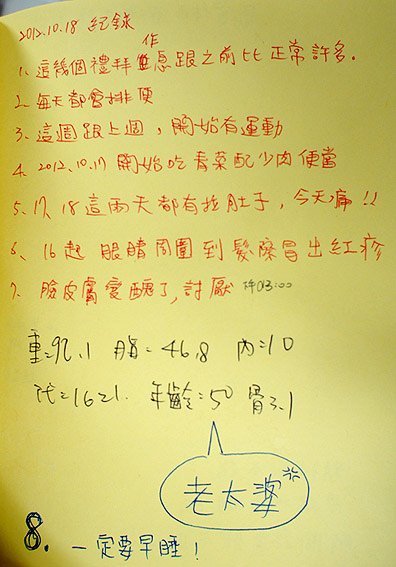 2012.10.18 紀錄
1、這幾個禮拜作息跟之前比正常許多。
2、每天都會排便
3、這週跟上週，開始有運動
4、2012.10.17 開始吃青菜配少肉便當
5、17、18這兩天都有拉肚子，今天痛!!
6、16起 眼睛周圍到髮際冒出紅疹
7、臉皮膚變醜了，討厭
脂=46.8 內=10
代=1621 年齡=50 骨3.1
老太婆
8.一定要早睡！